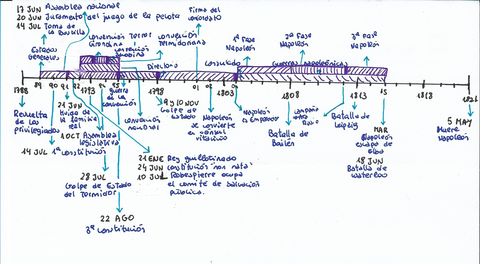 17 JUN Asamblea nacional
20 JUN Juramento del juego de la pelota
14 JUL Toma de la Bastilla
Firma del
Estados
Generales
Convención
Girondina
Convención
Convención
Termidoriana
Directorio
Consulado
1ª FASE
Napoleón
2ª FASE
Napoleón
3ª FASE
Napoleón
Guerras napoleónicas
1788
89
90
91
92
1793
94
95
1798
01
02
1803
04
1808
1813
15
1818
1821
Revuelta
de los
privilegiados
21 JUN
Huida de
la familia
real
1 OCT Asamblea
legislativa
14 JUL 1ª constitución
Convención
9 y 10 NOV
Golpe de
Estado
Napoleón
se convierte
en cónsul
vitalicio
Napoleón
es Emperador
Batalla
de
Bailén
Batalla de
Leipzig
MAR
Napoleón
escapa de
Elba
18 JUN
Batalla de
Waterloo
5 MAY
Muere
Napoleón
21 ENE Rey guillotinado
24 JUN constitución "non nata"
10 JUL Robespierre ocupa
el comité de salvación
pública.
28 JUL
Golpe de Estado
del Termidor
22 AGO
3ª constitución